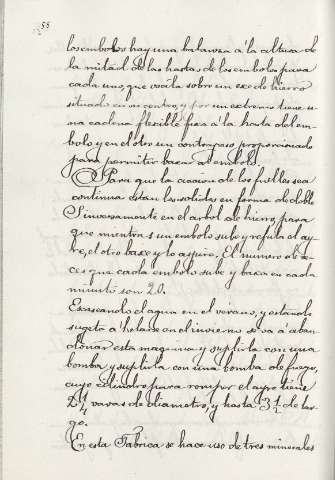 55
los embolos hay una balanza á la altura de
la mitad de las hastas de los embolos para
cada uno, que oscila sobre un exe de hierro
situado en su centro, y por un extremo tiene u-
na cadena flexible fixa á la hasta del em-
bolo y en el otro un contrapeso proporcionado
para permitir baxar al embolo.
Para que la accion de los fuelles sea
continua estan las volidas en forma de doble
S inversamente en el arbol de hierro, para
que mientras un embolo sube y refula el ay-
re, el otro baxe y lo aspire. El numero de ve-
ces que cada embolo sube y baxa en cada
minuto son 20.
Escaseando el agua en el verano, y estando
sugeta á helarse en el invierno se va á aban-
donar esta maquina y suplirla con una
bomba y suplirla con una bomba de fuego,
cuyo cilindro para romper el ayre tiene
2 1/4 varas de diametro, y hasta 3 1/2 de lar-
go.
En esta Fabrica se hace uso de tres minerales